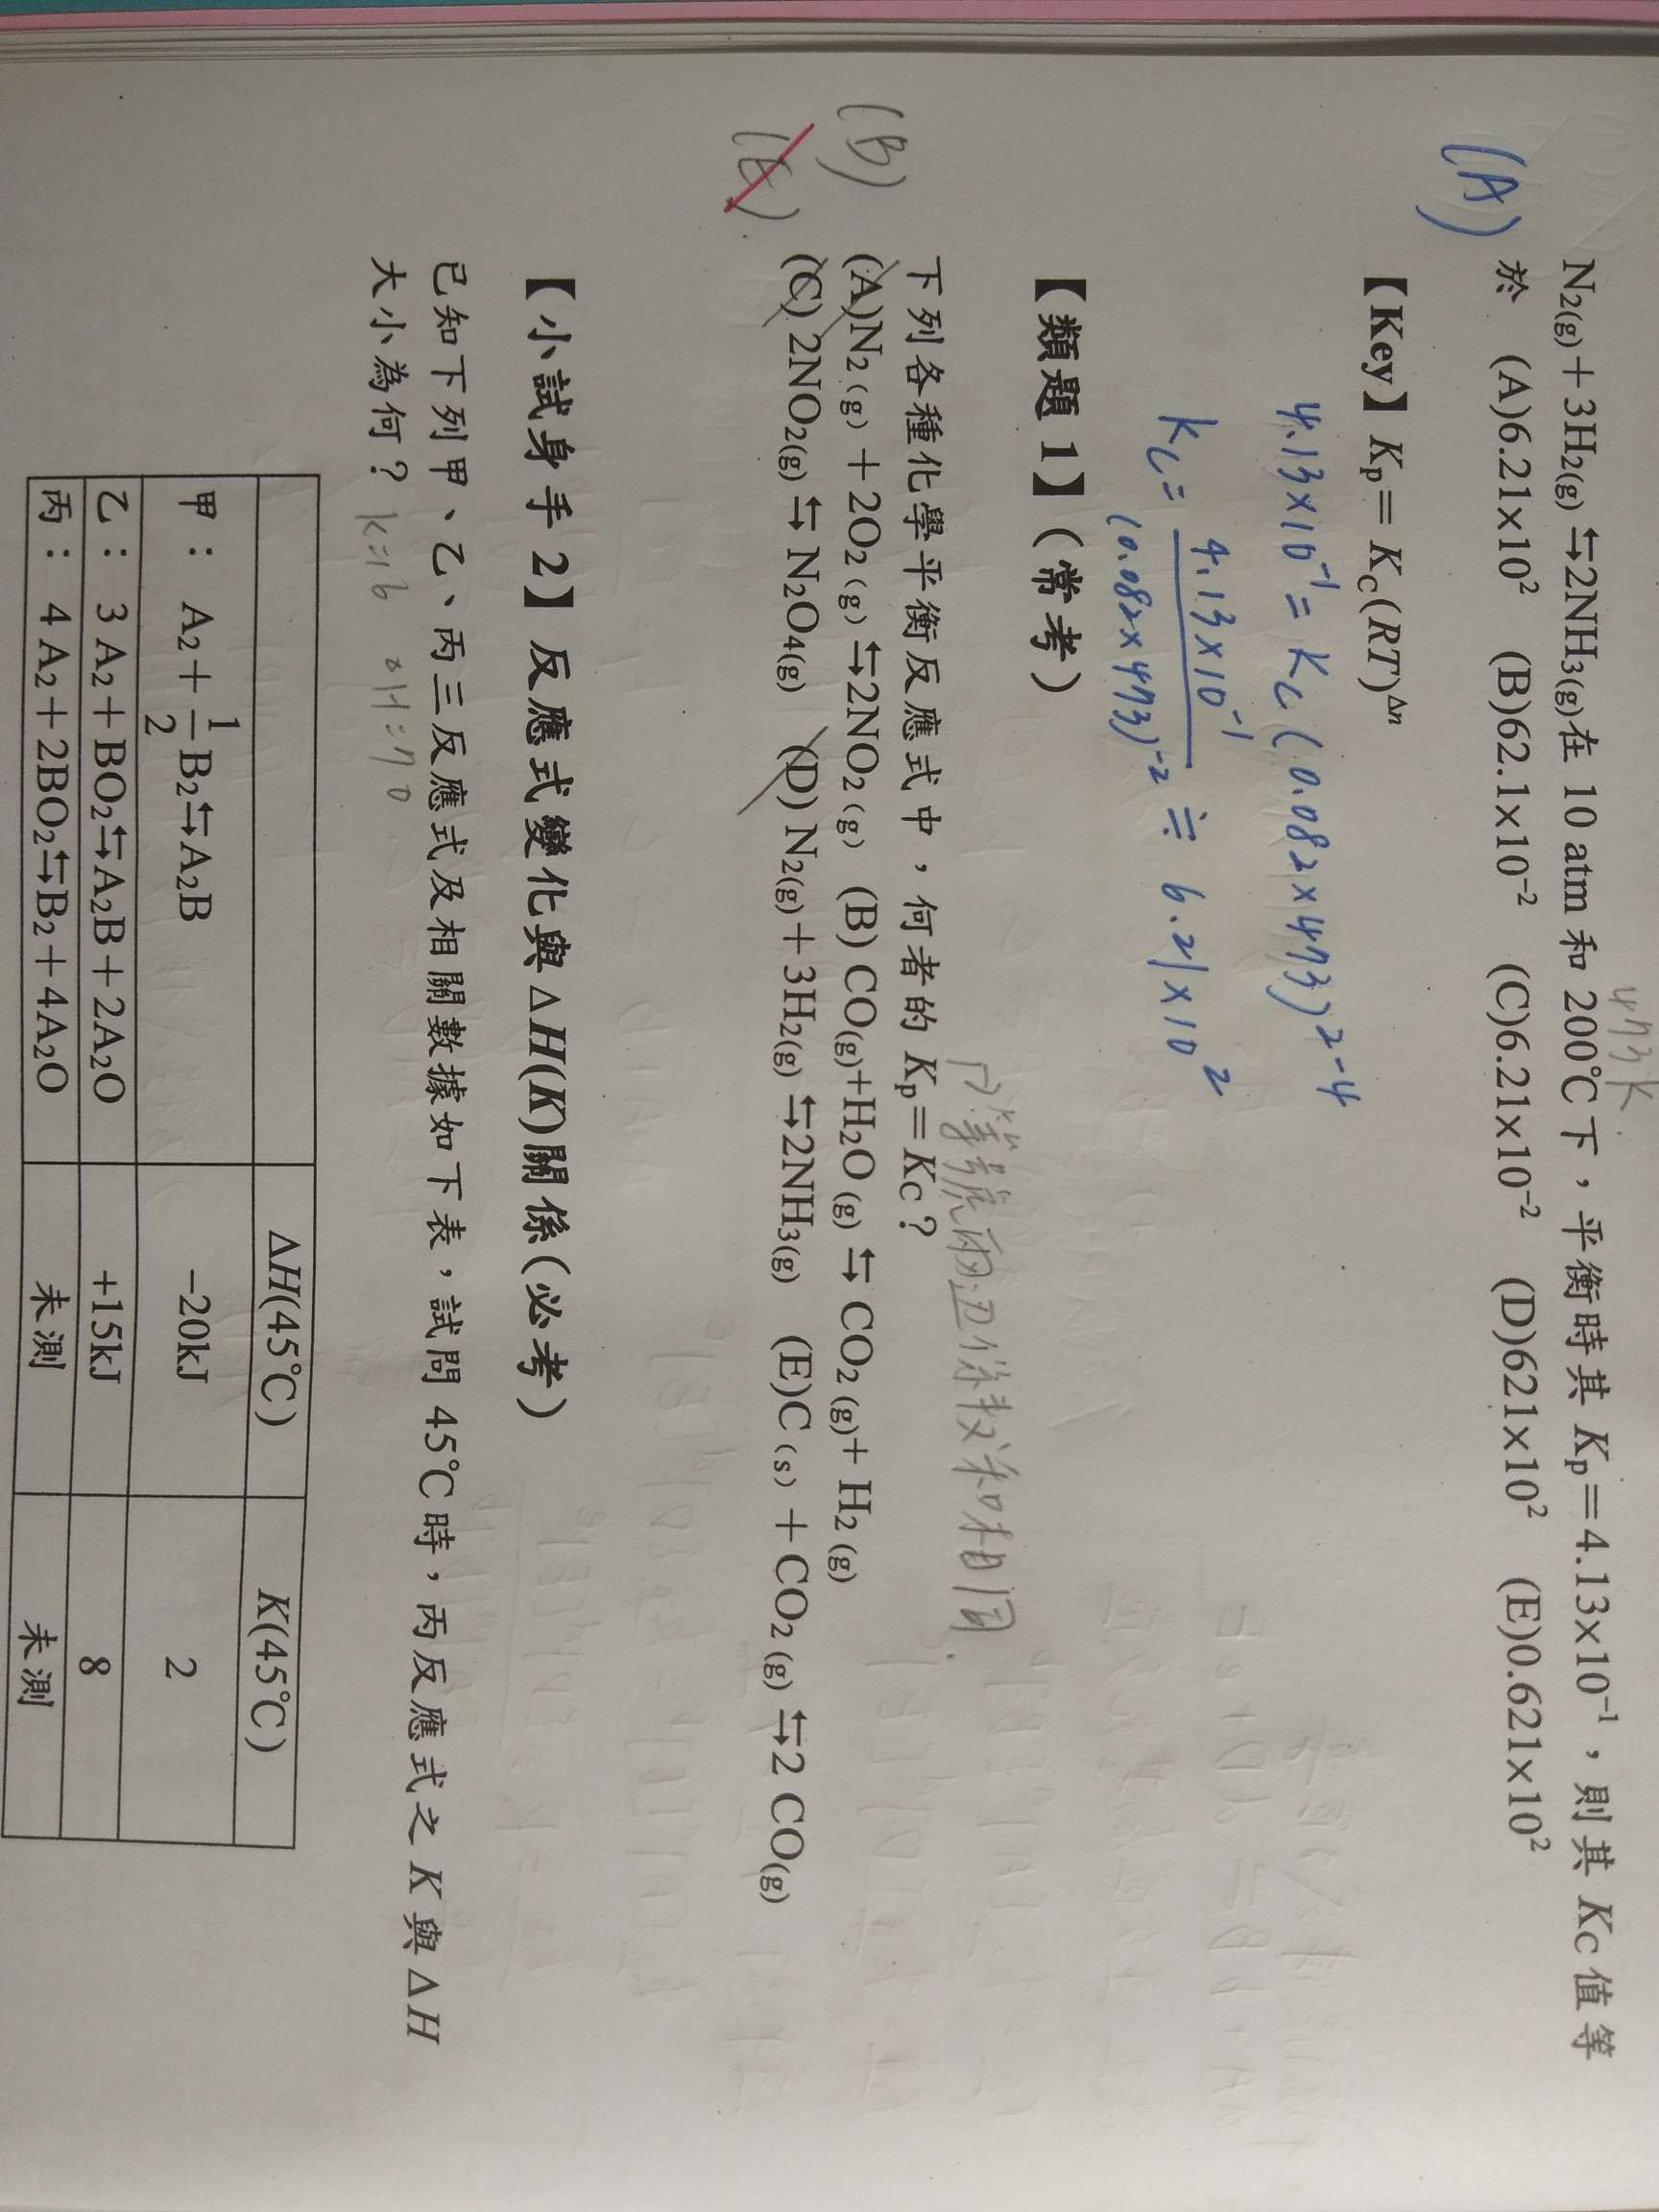 473K
N₂(g)+3H₂(g)⇆2NH₃(g)在 10 atm 和 200℃下，平衡時其 Kp=4.13×10⁻¹，則其 KC 值等
(A) 於 (A)6.21×10² (B)62.1×10⁻² (C)6.21×10⁻² (D)621×10² (E)0.621×10²
【Key】Kp= KC(RT)^Δn
4.13×10⁻¹= KC (0.082×473)²⁻⁴
KC= 4.13×10⁻¹ / (0.082×473)⁻² ≒ 6.21×10²
【類題 1】(常考)
等號兩邊係數和相同.
下列各種化學平衡反應式中，何者的 Kp=KC？
(B) (A)N₂(g)+2O₂(g)⇆2NO₂(g) (B) CO(g)+H₂O(g) ⇆ CO₂(g)+ H₂(g)
(E) (C) 2NO₂(g)⇆ N₂O₄(g) (D) N₂(g)+3H₂(g)⇆2NH₃(g) (E)C(s)+CO₂(g)⇆2 CO(g)
【小試身手 2】反應式變化與 ΔH(K)關係(必考)
已知下列甲、乙、丙三反應式及相關數據如下表，試問 45℃時，丙反應式之 K 與 ΔH
大小為何？ k=16 ΔH=70
ΔH(45℃) K(45℃)
甲： A₂+½B₂⇆A₂B −20kJ 2
乙： 3 A₂+BO₂⇆A₂B+2A₂O +15kJ 8
丙： 4 A₂+2BO₂⇆B₂+4A₂O 未測 未測